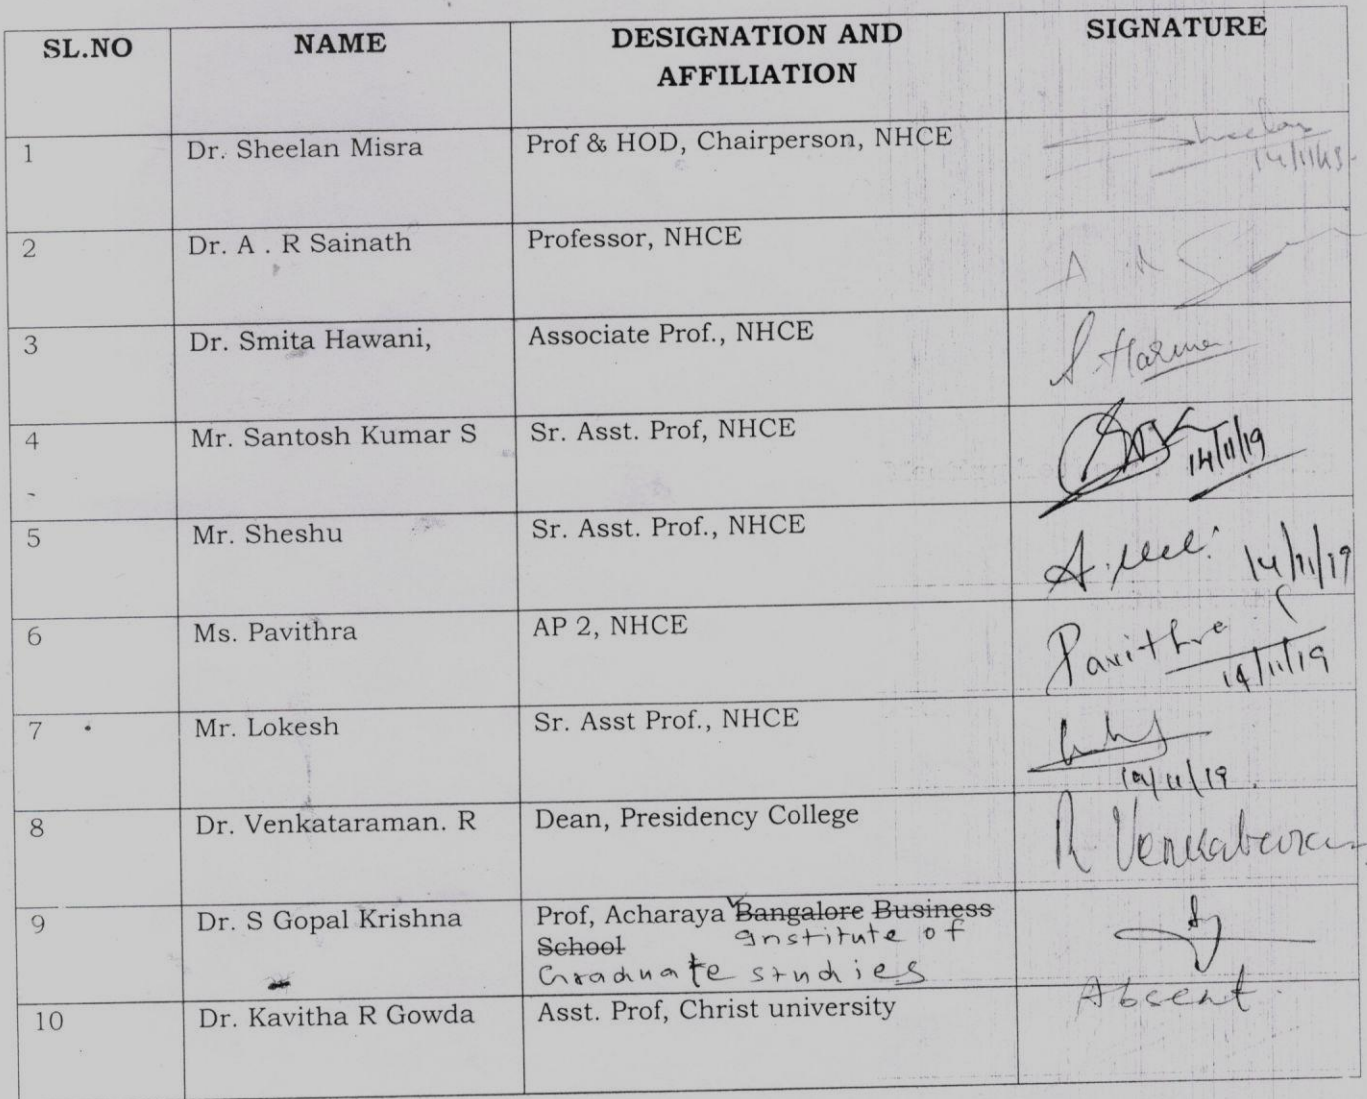 SL.NO NAME DESIGNATION AND AFFILIATION SIGNATURE
1 Dr. Sheelan Misra Prof & HOD, Chairperson, NHCE Sheelan
14/11/19
2 Dr. A . R Sainath Professor, NHCE A R
3 Dr. Smita Hawani, Associate Prof., NHCE
4 Mr. Santosh Kumar S Sr. Asst. Prof, NHCE
14/11/19
5 Mr. Sheshu Sr. Asst. Prof., NHCE 14/11/19
6 Ms. Pavithra AP 2, NHCE Pavithra
14/11/19
7 Mr. Lokesh Sr. Asst Prof., NHCE
14/11/19
8 Dr. Venkataraman. R Dean, Presidency College R Venkataraman
9 Dr. S Gopal Krishna Prof, Acharaya Bangalore Business
School Institute of
Graduate studies
10 Dr. Kavitha R Gowda Asst. Prof, Christ university Absent